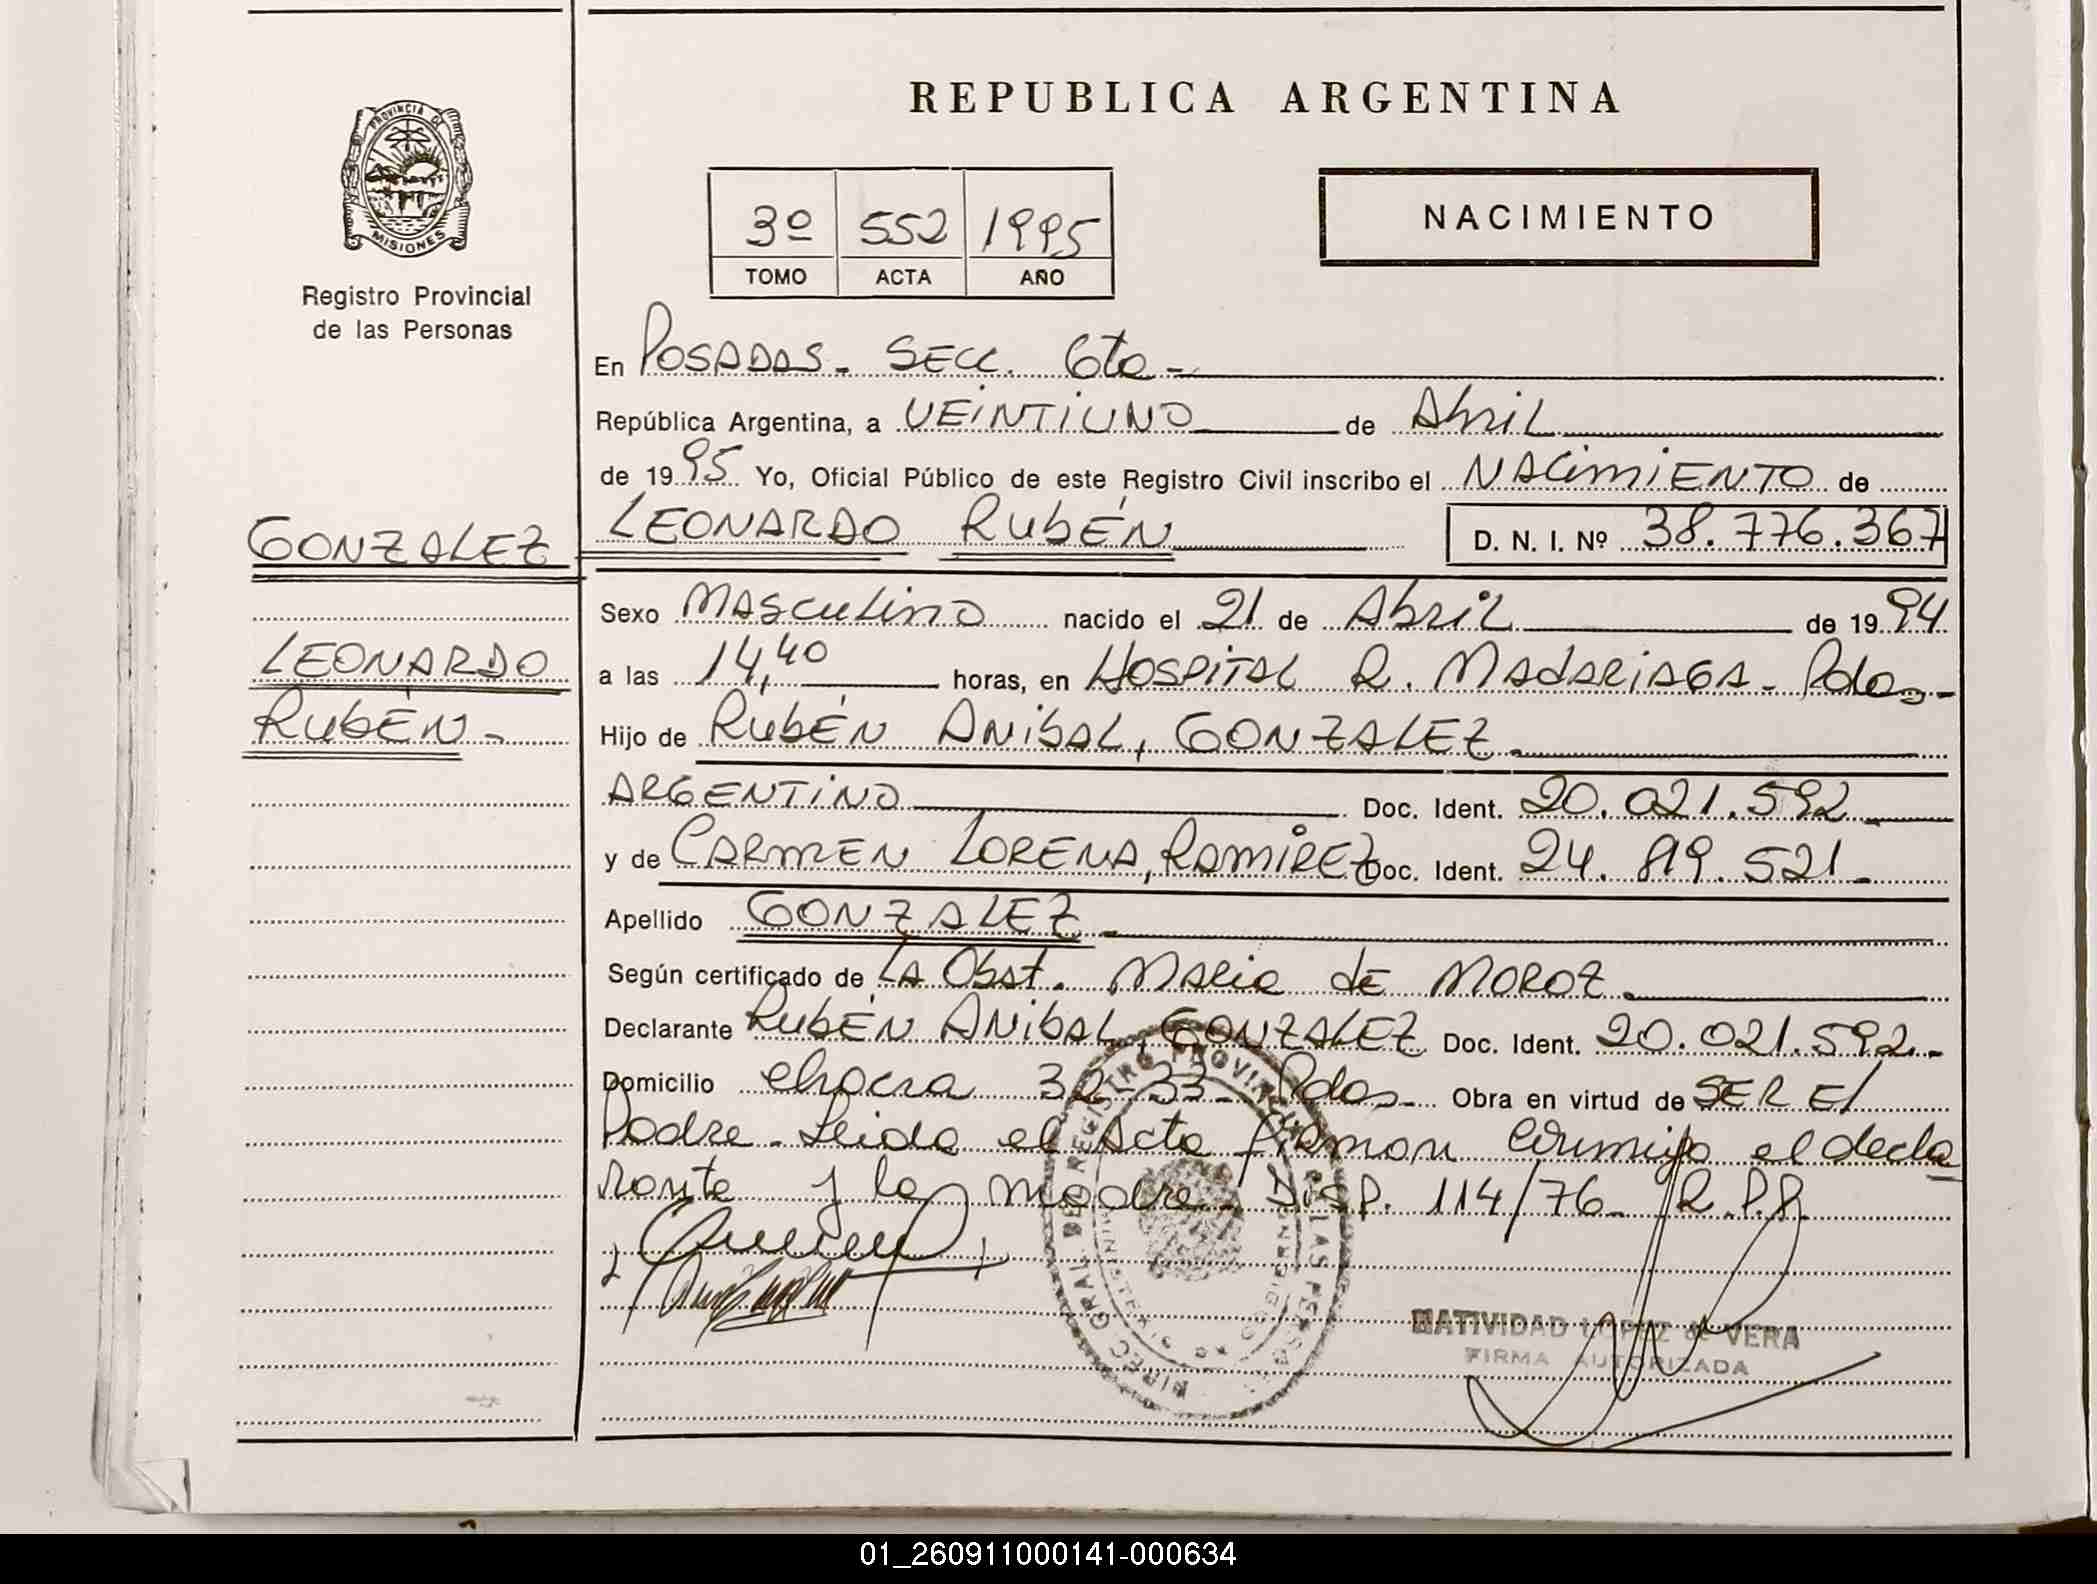 REPUBLICA ARGENTINA
PROVINCIA DE
MISIONES
Registro Provincial
de las Personas
3º 552 1995
TOMO ACTA AÑO
NACIMIENTO
En POSADAS - SECC. 6ta -
República Argentina, a VEINTIUNO de Abril
de 1995 Yo, Oficial Público de este Registro Civil inscribo el NACIMIENTO de
GONZALEZ LEONARDO RUBÉN D. N. I. Nº 38.776.367
Sexo MASCULINO nacido el 21 de Abril de 1994
LEONARDO
a las 14,40 horas, en HOSPITAL R. MADARIAGA - Pdas -
RUBÉN -
Hijo de RUBÉN ANIBAL, GONZALEZ
ARGENTINO Doc. Ident. 20.021.592
y de CARMEN LORENA, RAMIREZ Doc. Ident. 24.819.521 -
Apellido GONZALEZ
Según certificado de LA Obst. MARIA de MOROZ
Declarante RUBÉN ANIBAL, GONZALEZ Doc. Ident. 20.021.592 -
Domicilio chacra 32-33 - Pdas - Obra en virtud de SER El
Padre - Leida el Acta firman conmigo el decla
rante y la madre - DISP. 114/76 - R.P.P.
DIREC. GRAL. DEL REGISTRO PROVINCIAL DE LAS PERSONAS
NATIVIDAD LOPEZ de VERA
FIRMA AUTORIZADA
01_260911000141-000634